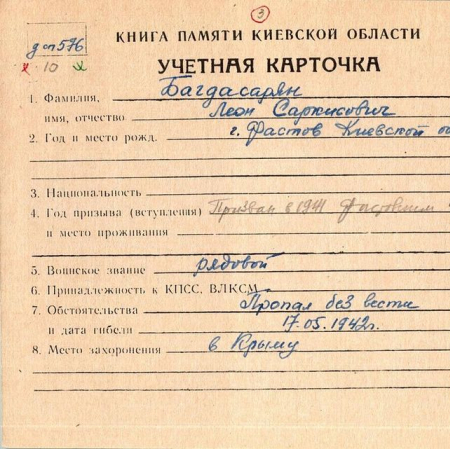 3
КНИГА ПАМЯТИ КИЕВСКОЙ ОБЛАСТИ
УЧЕТНАЯ КАРТОЧКА
х 10 х
1. Фамилия, Багдасарян
имя, отчество Леон Саркисович
2. Год и место рожд. г. Фастов Киевской об
3. Национальность
4. Год призыва (вступления) Призван в 1941 Фастовским
и место проживания
5. Воинское звание рядовой
6. Принадлежность к КПСС, ВЛКСМ
7. Обстоятельства Пропал без вести
и дата гибели 17.05.1942г.
8. Место захоронения в Крыму